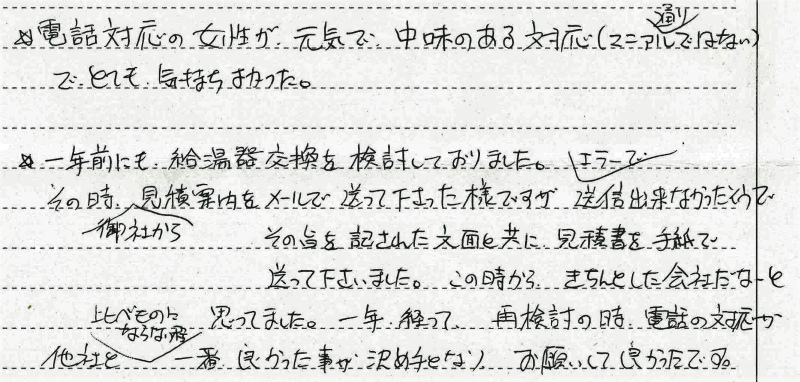 ☆電話対応の女性が、元気で、中味のある対応(マニアル通りではない)
で、とても、気持ち良かった。
☆一年前にも、給湯器交換を検討しておりました。
その時、御社から見積案内をメールで送って下さった様ですが、エラーで送信出来なかったそうで
その旨を記された文面と共に、見積書を手紙で
送って下さいました。この時から、きちんとした会社だなーと
思ってました。一年、経って、再検討の時、電話の対応が
他社と比べものにならない程一番良かった事が決め手となり、お願いして良かったです。